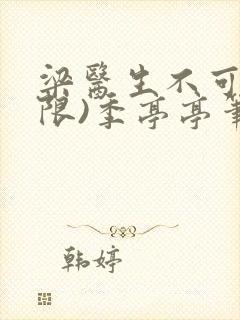 梁醫生不可
限)季亭亭筆
韩婷